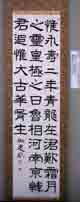 惟永壽二年青龍在涒歎霜月
之靈皇極之日魯相河南京韓
君追惟大古華胥生